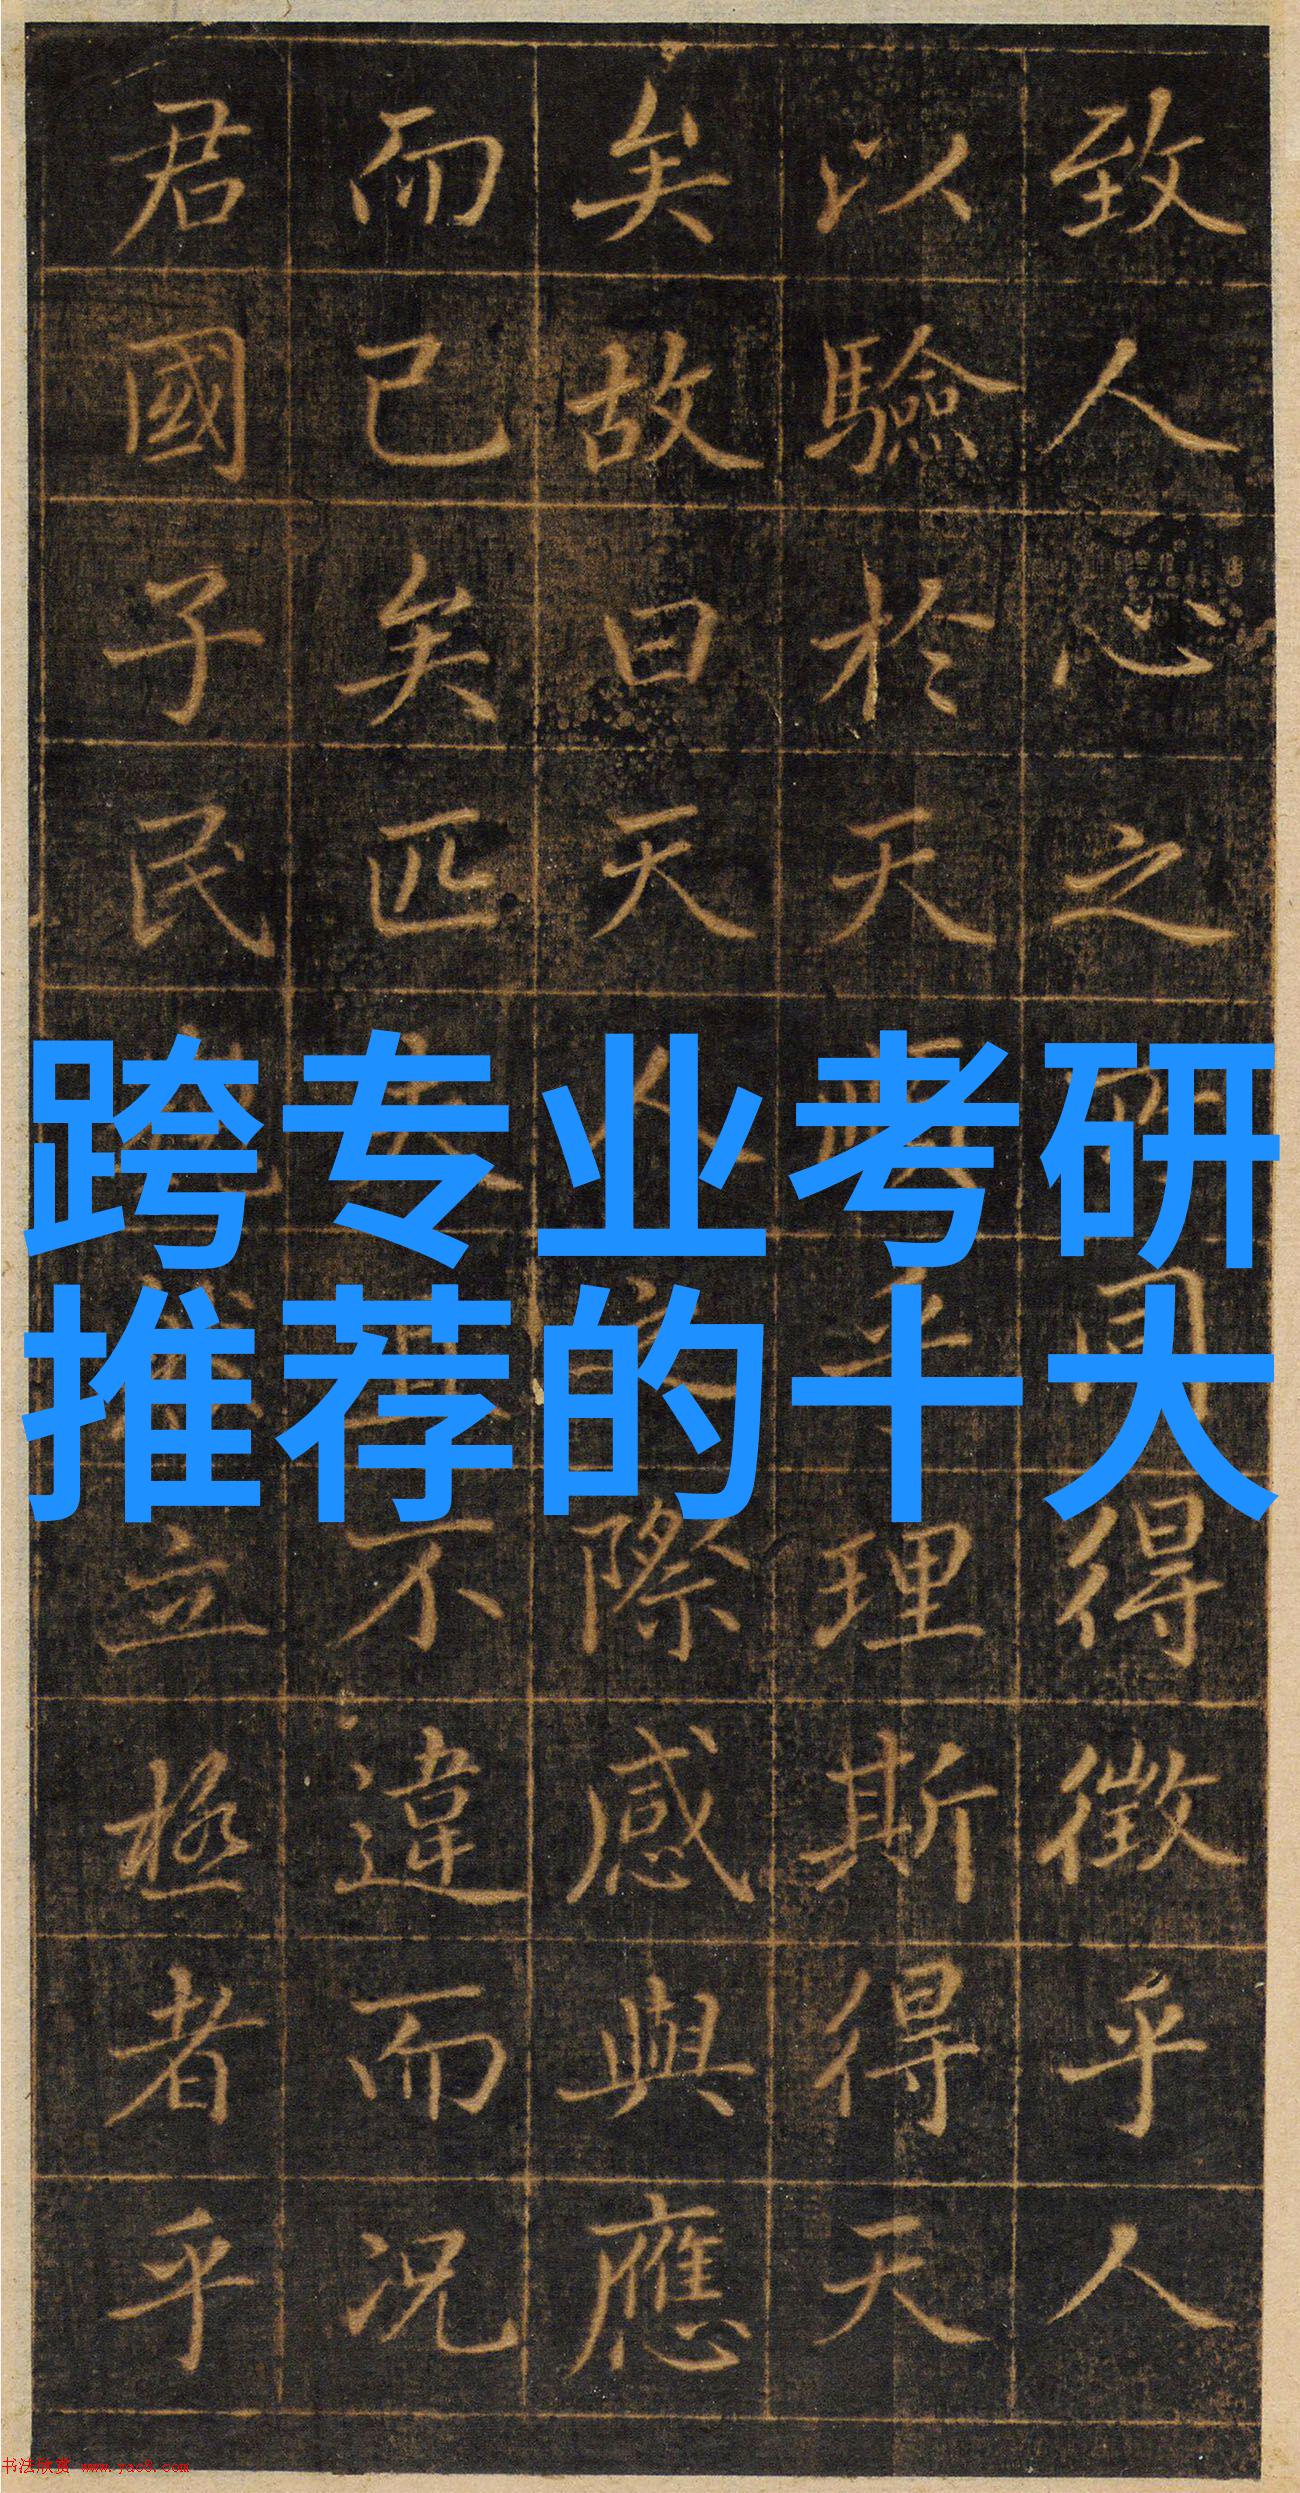 致人心之同得徵乎人
以驗於天乎理斯得天
矣故曰天人之際感與應
而已矣匹夫不違而况
君國子民立極者乎
跨专业考研
推荐的十大
书法欣赏 www.yac8.com